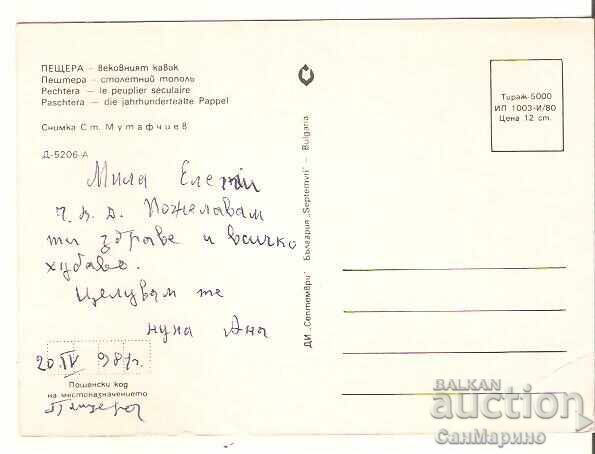 ПЕЩЕРА – вековният кавак
Пештера – столетний тополь
Pechtera – le peuplier séculaire
Paschtera – die jahrhundertealte Pappel
Снимка Ст. Мутафчиев
Д-5206-А
Мила
Ч. В. Д. Пожелавам
ти здраве и всичко
хубаво.
Целувам те
нуна Ана
20 IV 981г.
Пощенски код
на местоназначението
ДИ „Септември" България „Septemvri" – Bulgaria
Тираж-5000
ИП 1003-И/80
Цена 12 ст.
BALKAN
auction
СанМарино